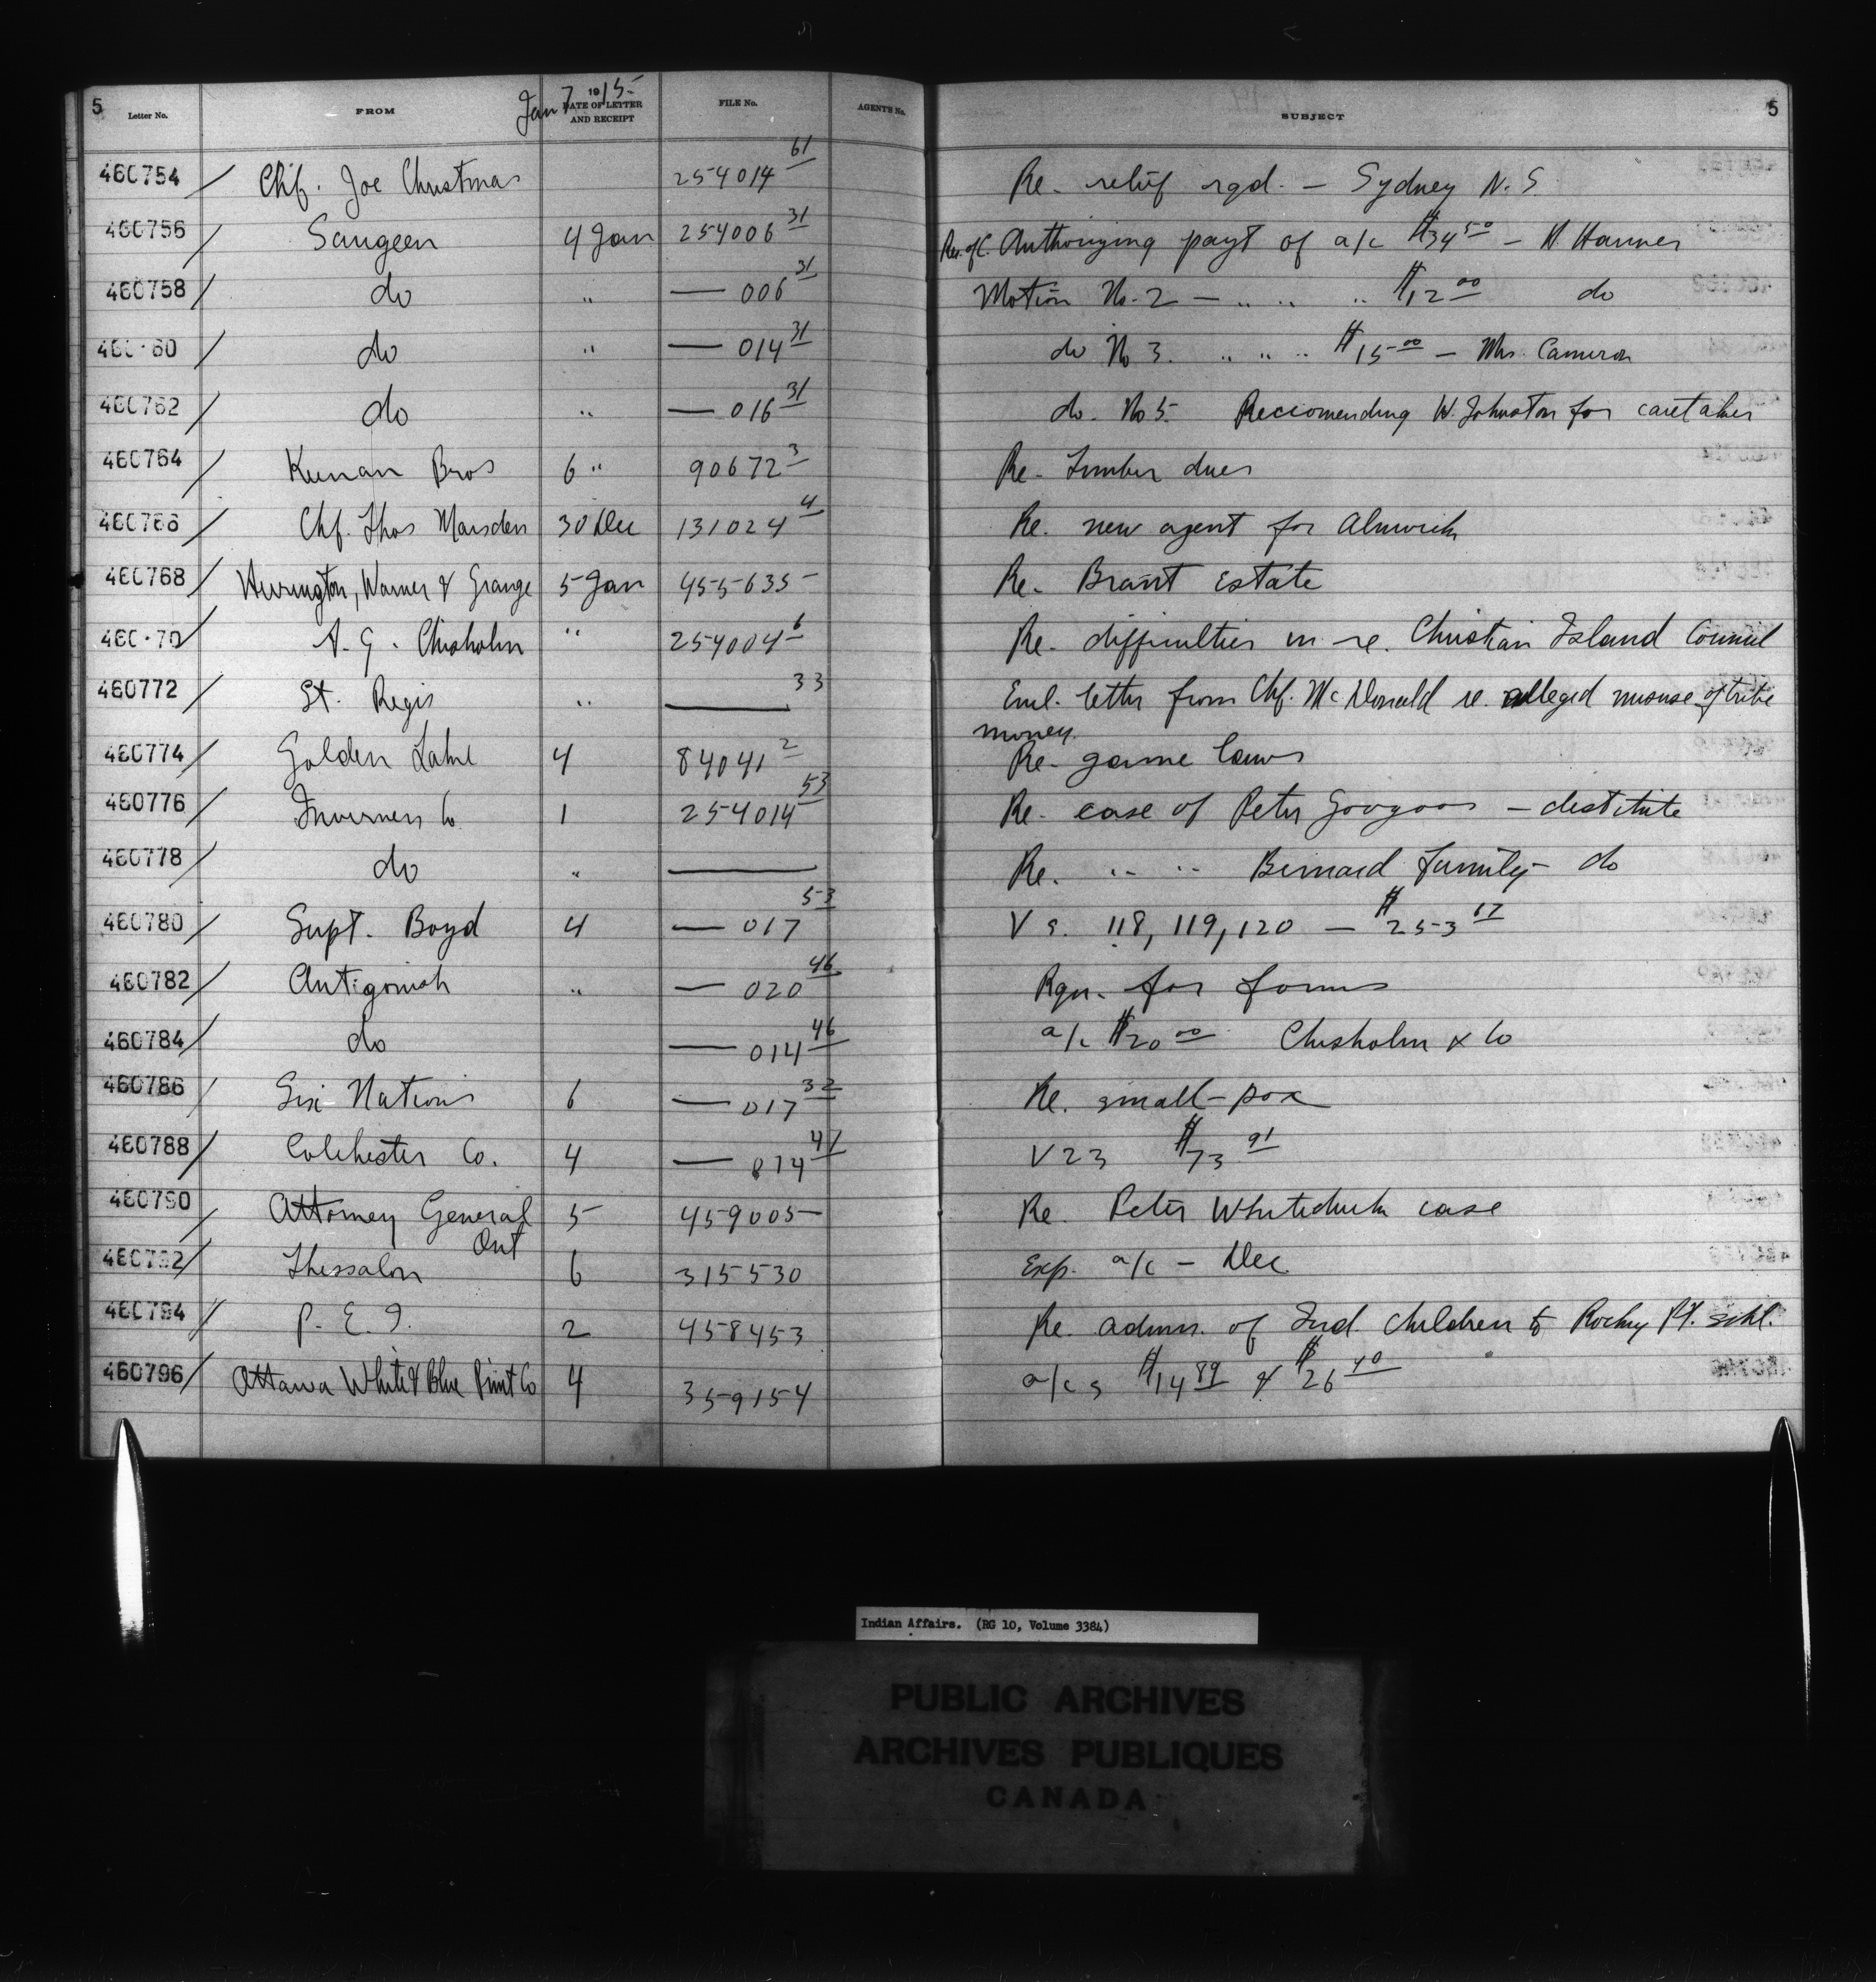 5 Letter No. FROM Jan 7 1915 DATE OF LETTER AND RECEIPT FILE No. AGENT'S No. SUBJECT 5
460754 / Chf. Joe Christmas 254014 61 Re. relief rqd. — Sydney N. S.
460756 / Saugeen 4 Jan 254006 31 Res. of C. Authorizing payt of a/c $34 50 — H. Harmer
460758 / do " — 006 31 Motion No. 2 — " " " $12 00 do
460 60 / do " — 014 31 do No 3. " " " $15 00 — Mrs. Cameron
460762 / do " — 016 31 do. No 5. Reccomending W. Johnston for caretaker
460764 / Keenan Bros 6 " 90672 3 Re. Timber dues
460766 / Chf. Thos Marsden 30 Dec 131024 4 Re. new agent for Alnwick
460768 / Herrington, Warner & Grange 5 Jan 455635 Re. Brant Estate
460 70 / A. G. Chisholm " 254004 6 Re. difficulties in re. Christian Island Council
460772 / St. Regis " — 33 Encl. letter from Chf. McDonald re. alleged misuse of tribe
money.
460774 / Golden Lake 4 84041 2 Re. game laws
460776 / Inverness Co 1 254014 53 Re. case of Peter Googoos — destitute
460778 / do " — Re. " " Bernard family — do
460780 / Supt. Boyd 4 — 017 53 Vs. 118, 119, 120 — $253 17
460782 / Antigonish " — 020 46 Rqn. for forms
460784 / do — 014 46 a/c $20 00 Chisholm & Co
460786 / Six Nations 6 — 017 32 Re. small-pox
460788 / Colchester Co. 4 — 014 41 V 23 $73 91
460790 / Attorney General 5 459005 Re. Peter Whiteduck case
Ont
460792 / Thessalon 6 315530 Exp. a/c — Dec
460794 / P. E. I. 2 458453 Re. admn. of Ind. children to Rocky Pt. schl.
460796 / Ottawa White & Blue Print Co 4 359154 a/cs $14 89 & $26 40
Indian Affairs. (RG 10, Volume 3384)
PUBLIC ARCHIVES
ARCHIVES PUBLIQUES
CANADA